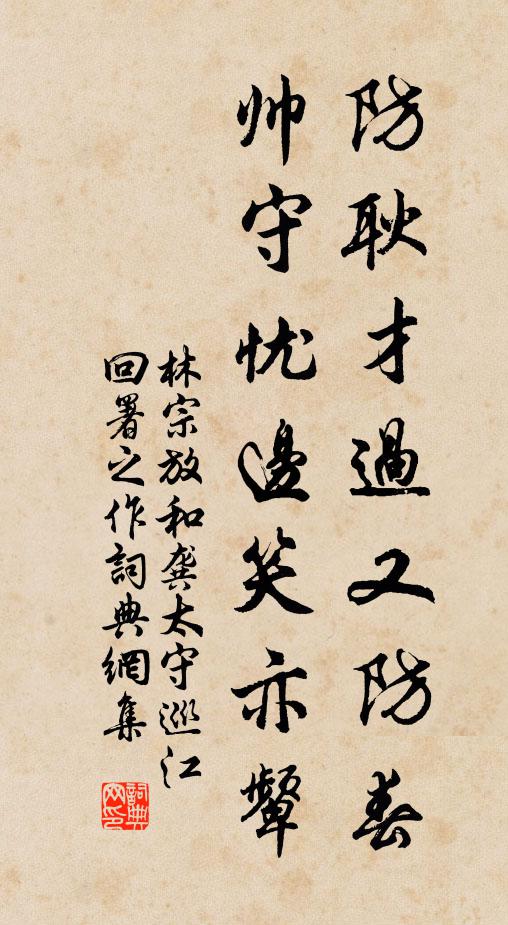 防耿才過又防春
帅守忧邊笑亦颦
林宗放和龚太守巡江
回署之作詞典網集
詞典
网印